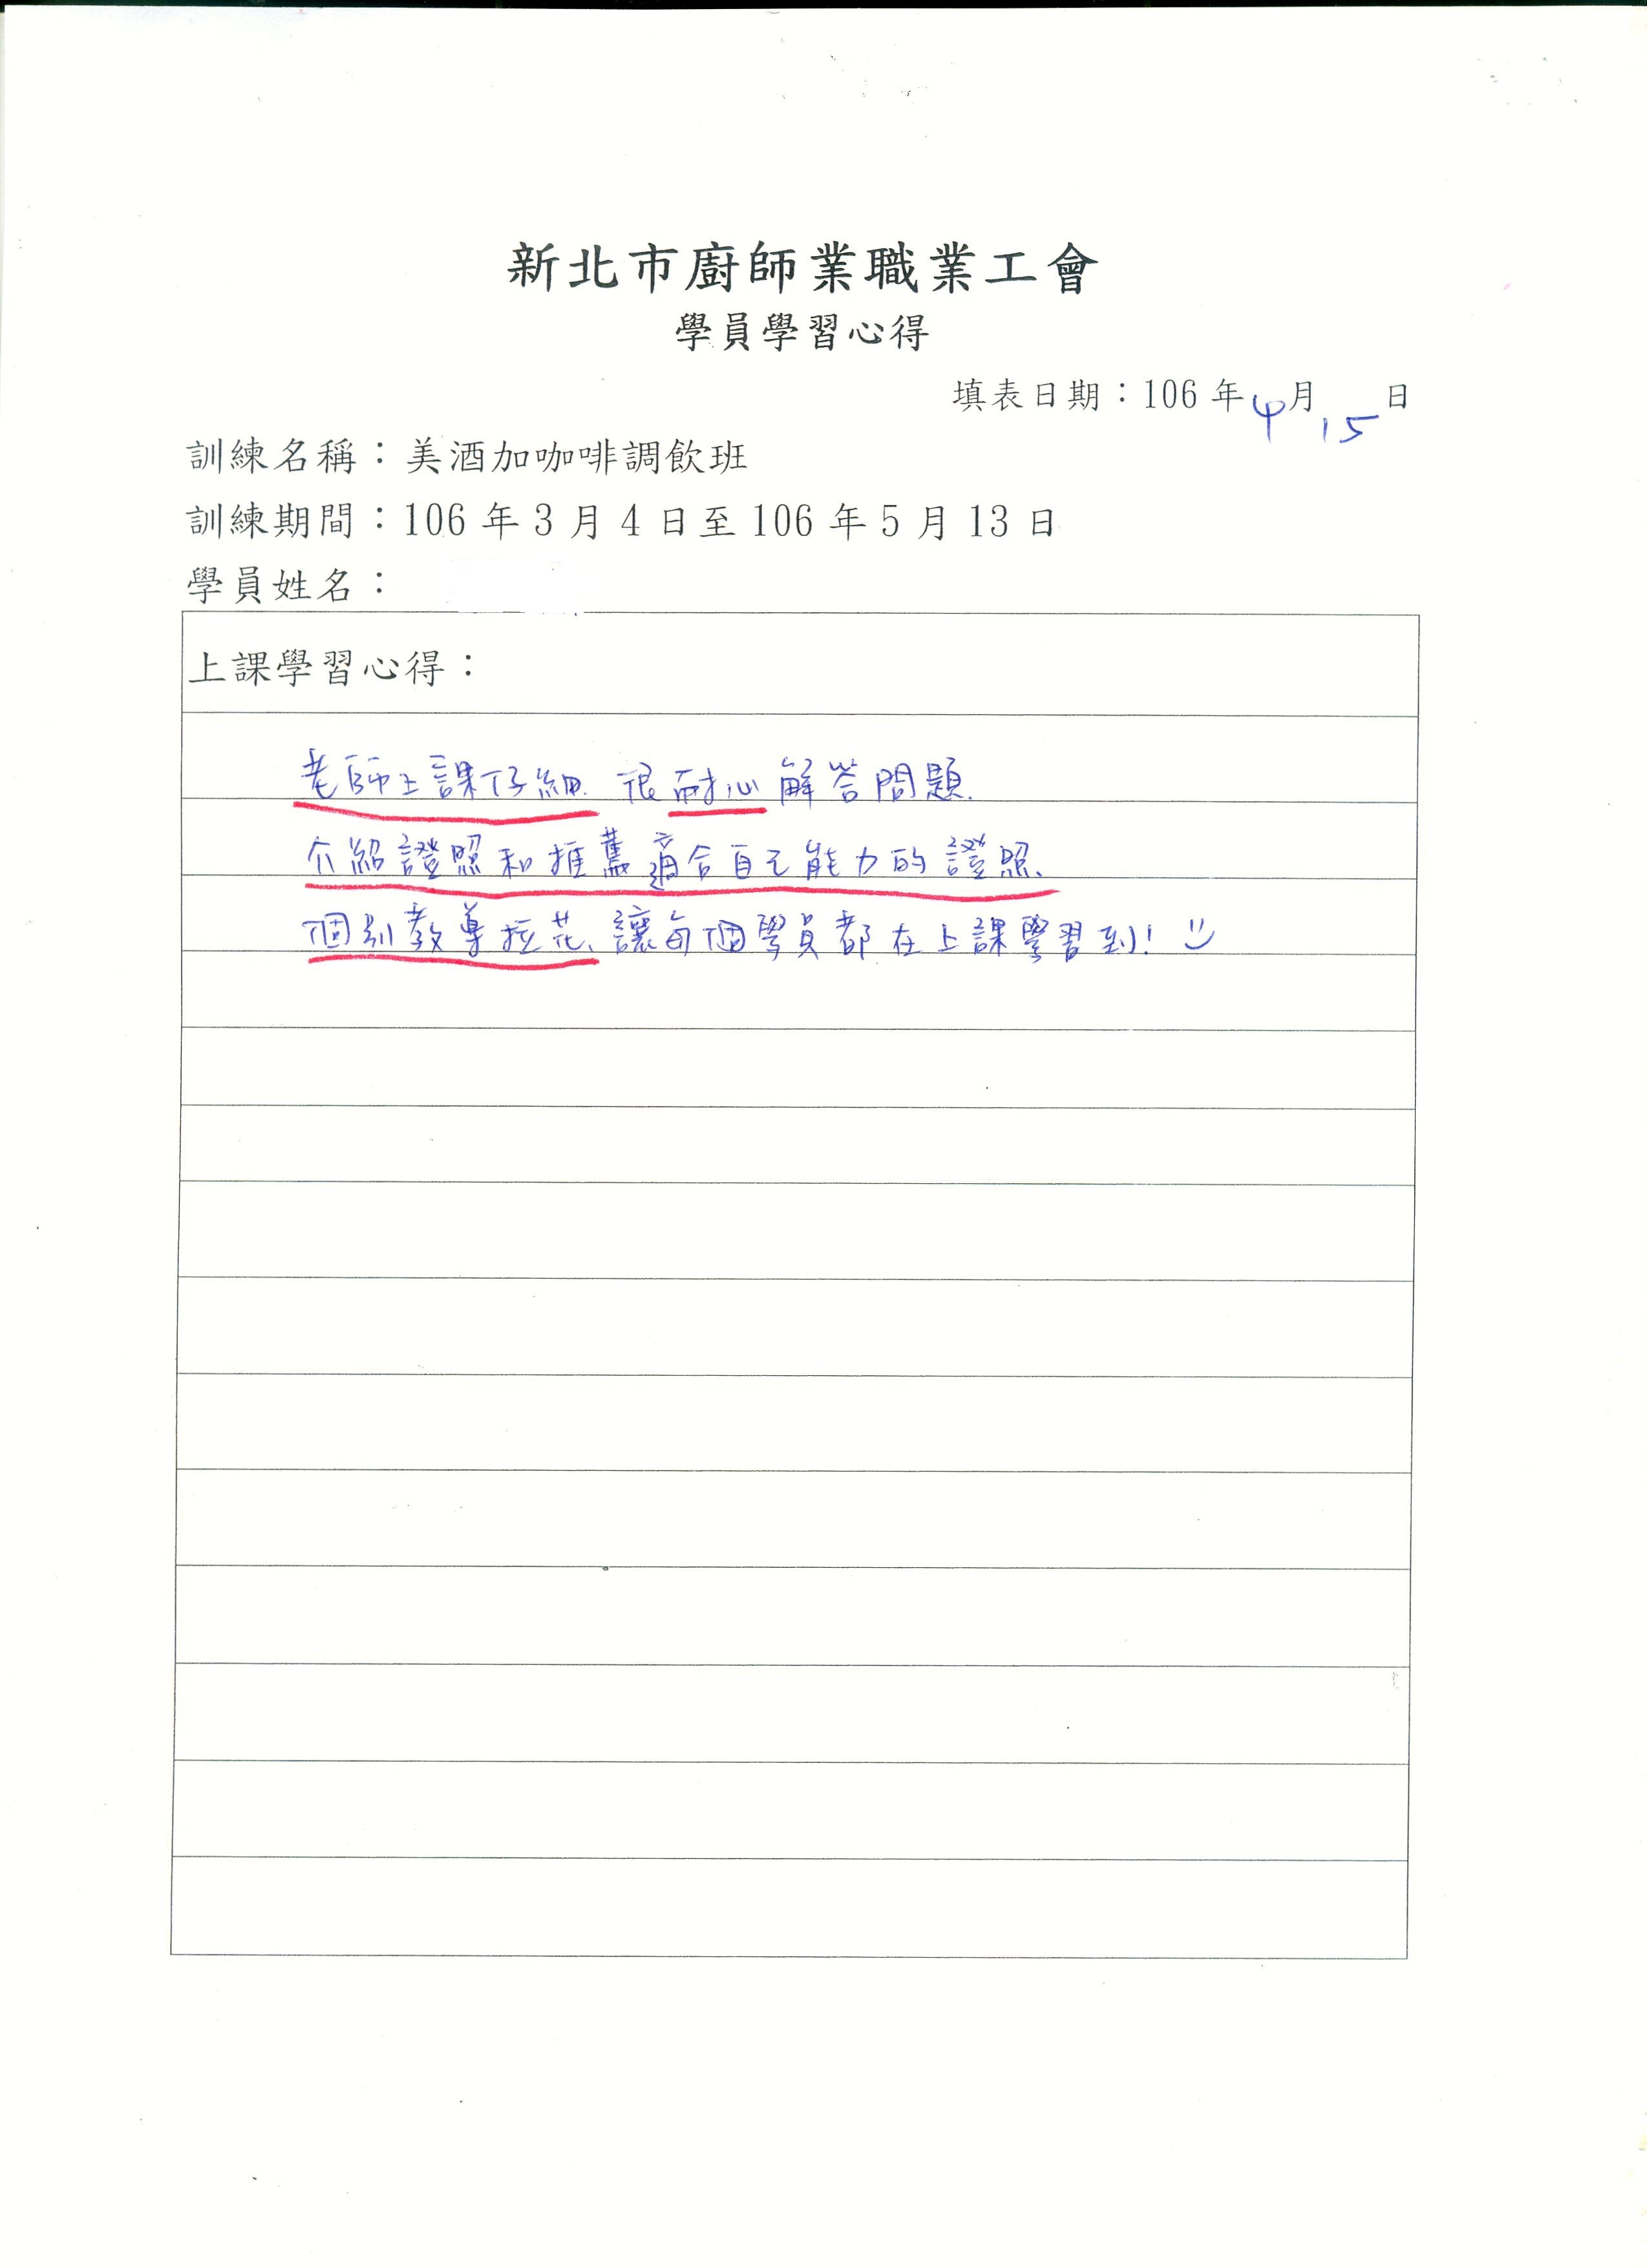 新北市廚師業職業工會
學員學習心得
填表日期：106 年 4 月 15 日
訓練名稱：美酒加咖啡調飲班
訓練期間：106 年 3 月 4 日至 106 年 5 月 13 日
學員姓名：
上課學習心得：
老師上課仔細. 很耐心解答問題.
介紹證照和推薦適合自己能力的證照、
個別教導拉花、讓每個學員都在上課學習到! :)